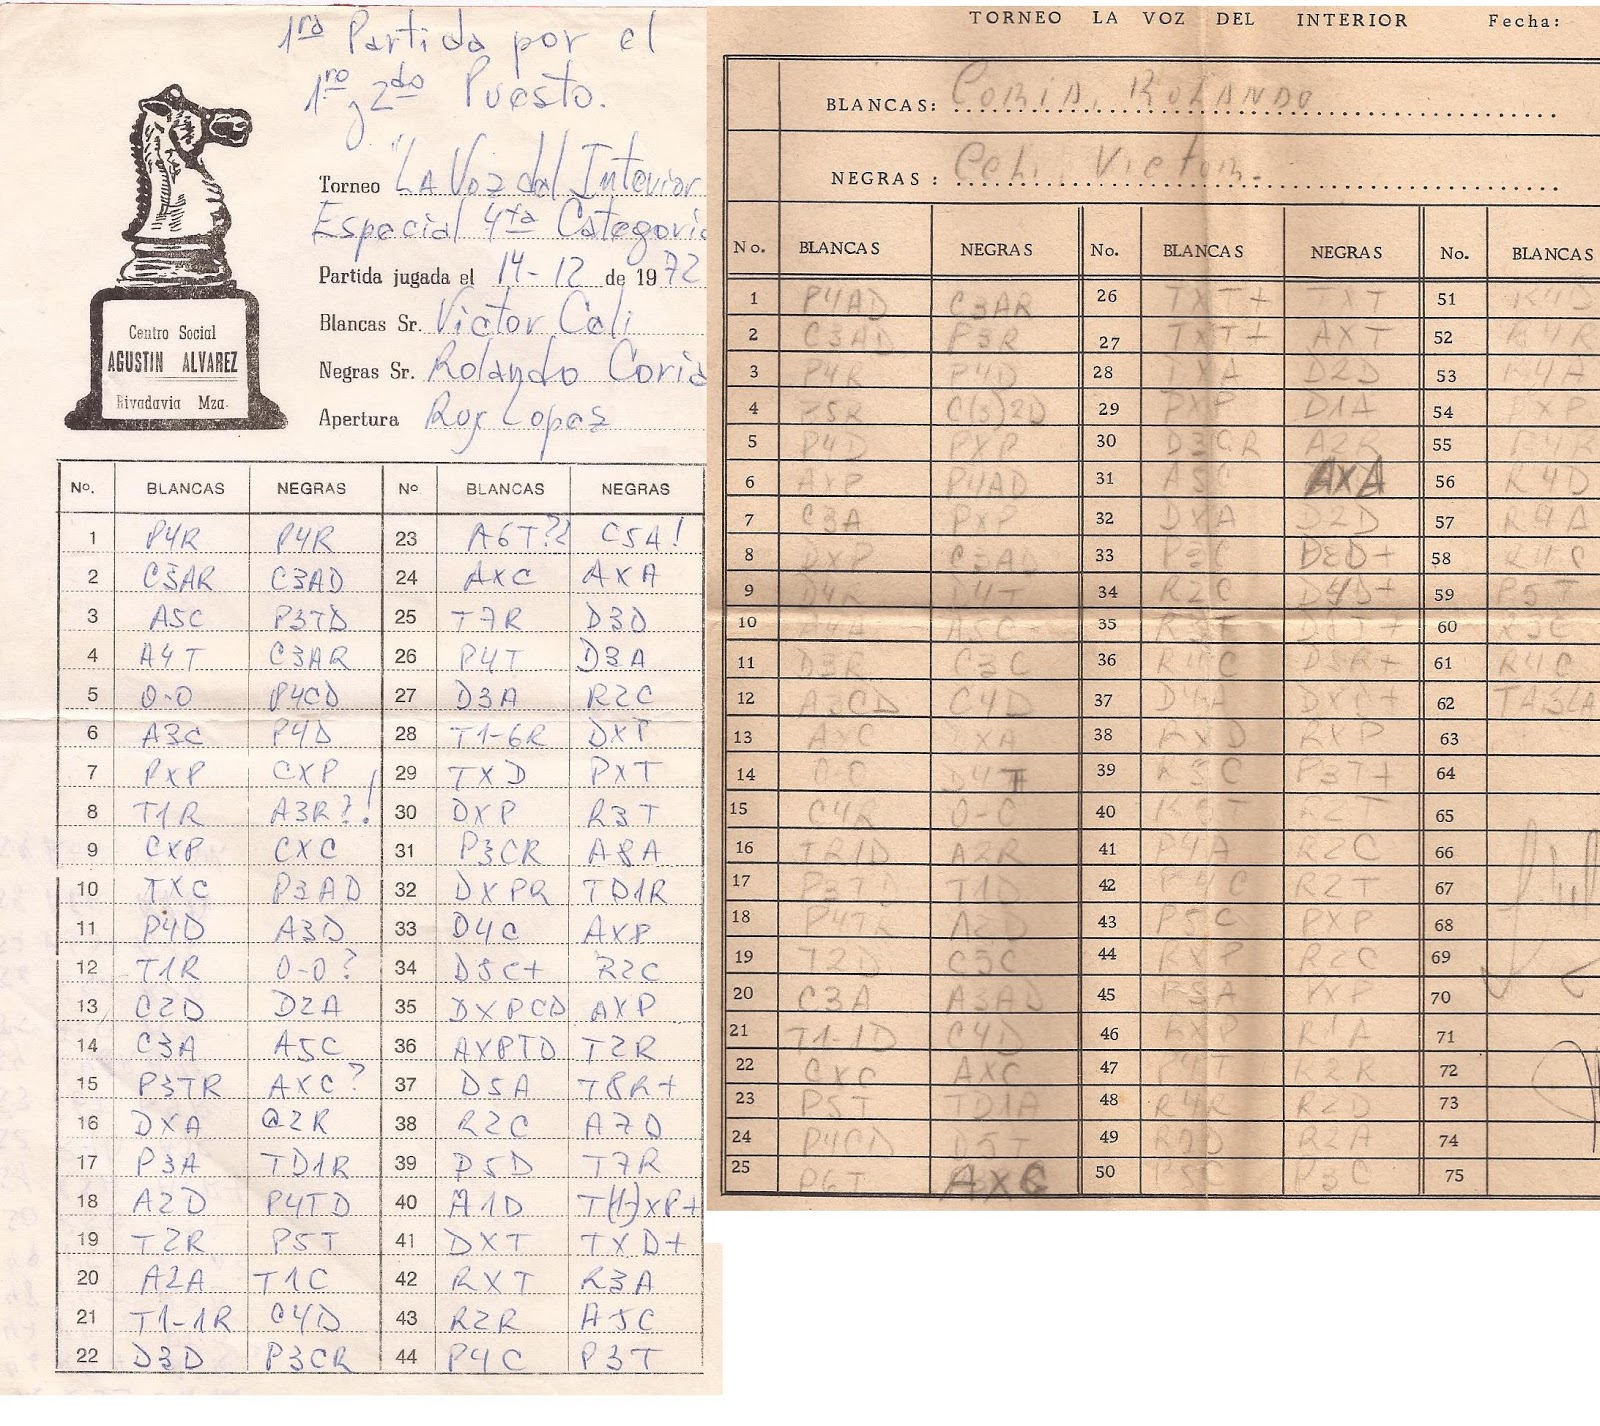 1ra Partida por el
1ro y 2do Puesto.
Torneo "La Voz del Interior
Especial 4ta Categoria
Partida jugada el 14-12 de 1972
Blancas Sr. Victor Celi
Negras Sr. Rolando Coria
Apertura Ruy Lopez
Centro Social
AGUSTIN ALVAREZ
Rivadavia Mza.
No. BLANCAS NEGRAS No BLANCAS NEGRAS
1 P4R P4R 23 A6T?? C5A!
2 C3AR C3AD 24 AXC AXA
3 A5C P3TD 25 T7R D3D
4 A4T C3AR 26 P4T D3A
5 0-0 P4CD 27 D3A R2C
6 A3C P4D 28 T1-6R DXP
7 PXP CXP 29 TXD PXT
8 T1R A3R?! 30 DXP R3T
9 CXP CXC 31 P3CR A8A
10 TXC P3AD 32 DXPR TD1R
11 P4D A3D 33 D4C AXP
12 T1R 0-0? 34 D5C+ R2C
13 C2D D2A 35 DXPCD AXP
14 C3A A5C 36 AXPTD T2R
15 P3TR AXC? 37 D5A T8R+
16 DXA 2R 38 R2C A7D
17 P3A TD1R 39 P5D T7R
18 A2D P4TD 40 A1D T(1)XP+
19 T2R P5T 41 DXT TXD+
20 A2A T1C 42 RXT R3A
21 T1-1R C4D 43 R2R A5C
22 D3D P3CR 44 P4C P3T
TORNEO LA VOZ DEL INTERIOR Fecha:
BLANCAS: CORIA, ROLANDO
NEGRAS: Celi, Victor.
No. BLANCAS NEGRAS No. BLANCAS NEGRAS No. BLANCAS
1 P4AD C3AR 26 TXT+ TXT 51
2 C3AD P3R 27 TXT+ AXT 52 R4R
3 P4R P4D 28 TXA D2D 53 R4A
4 P5R C(3)2D 29 PXP D1A 54 PXP
5 P4D PXP 30 D3CR A2R 55 R4R
6 AXP P4AD 31 A5C AXA 56 R4D
7 C3A PXP 32 DXA D2D 57 R4A
8 DXP C3AD 33 P3C D8D+ 58 R4C
9 D4R D4T 34 R2C D4D+ 59 P5T
10 A5C 35 R3T 60 R5C
11 D3R C3C 36 R4C 61 R4C
12 A3CD C4D 37 62 TABLAS
13 AXC XA 38 RXD RXP 63
14 0-0 D4T 39 R5C P3T+ 64
15 C4R 0-0 40 R2T 65
16 TR1D A2R 41 P4A R2C 66
17 P3TD T1D 42 P4C R2T 67
18 P4TR 43 P5C PXP 68
19 T2D C5C 44 RXP R2C 69
20 C3A A3AD 45 70
21 T1-1D C4D 46 71
22 CXC AXC 47 P4T R2R 72
23 P5T TD1A 48 R4R R2D 73
24 P4CD D5T 49 R5D R2A 74
25 P6T AXC 50 P5C P3C 75